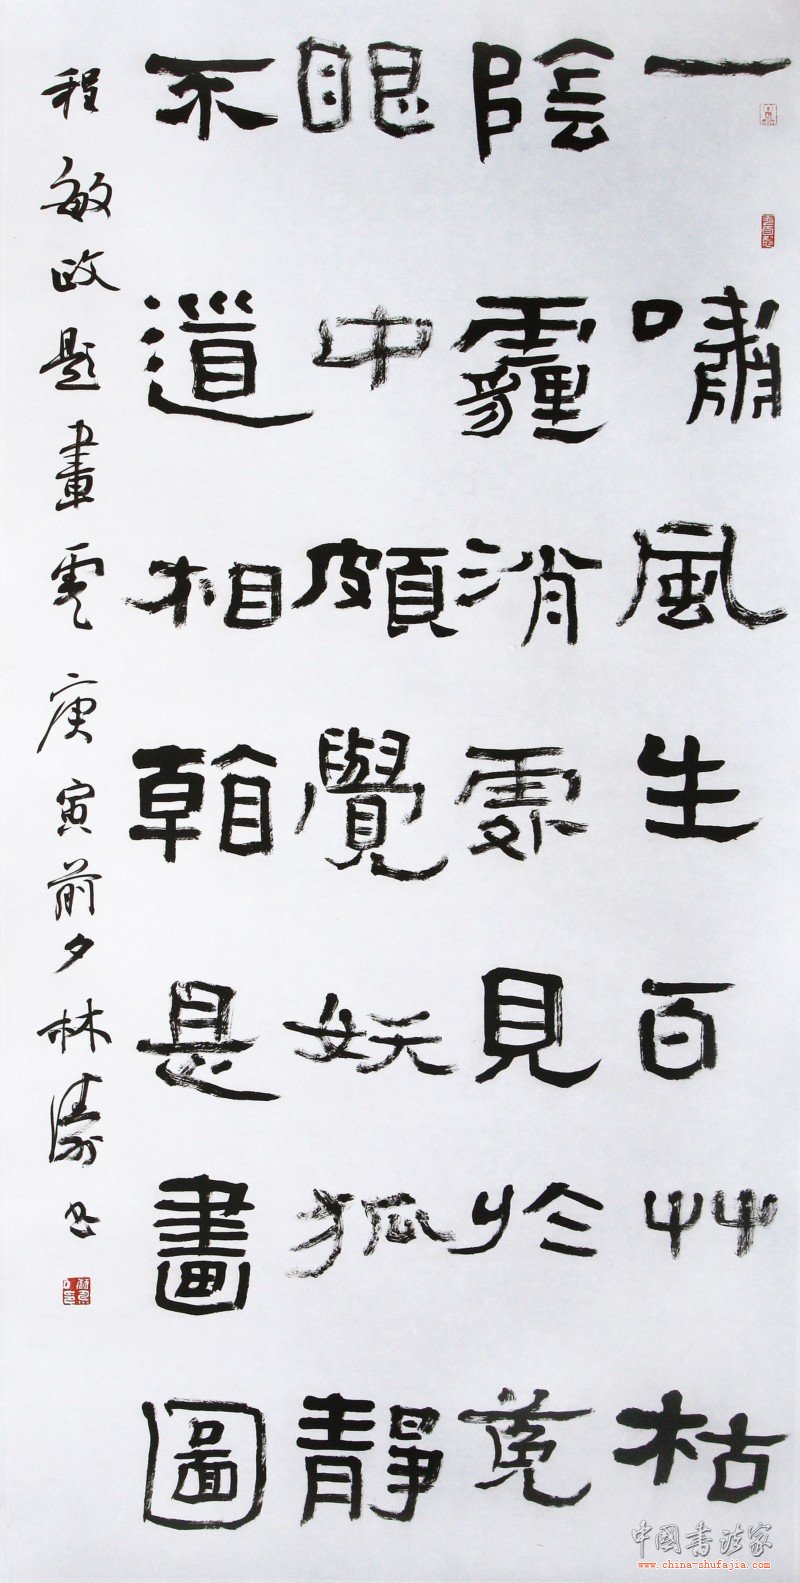 一嘯風生百艸枯
陰霾消處見於菟
眼中頗覺妖狐靜
不道相看是畫圖
程敏政题畫虎庚寅前夕林涛书
中國書法家
www.china-shufajia.com